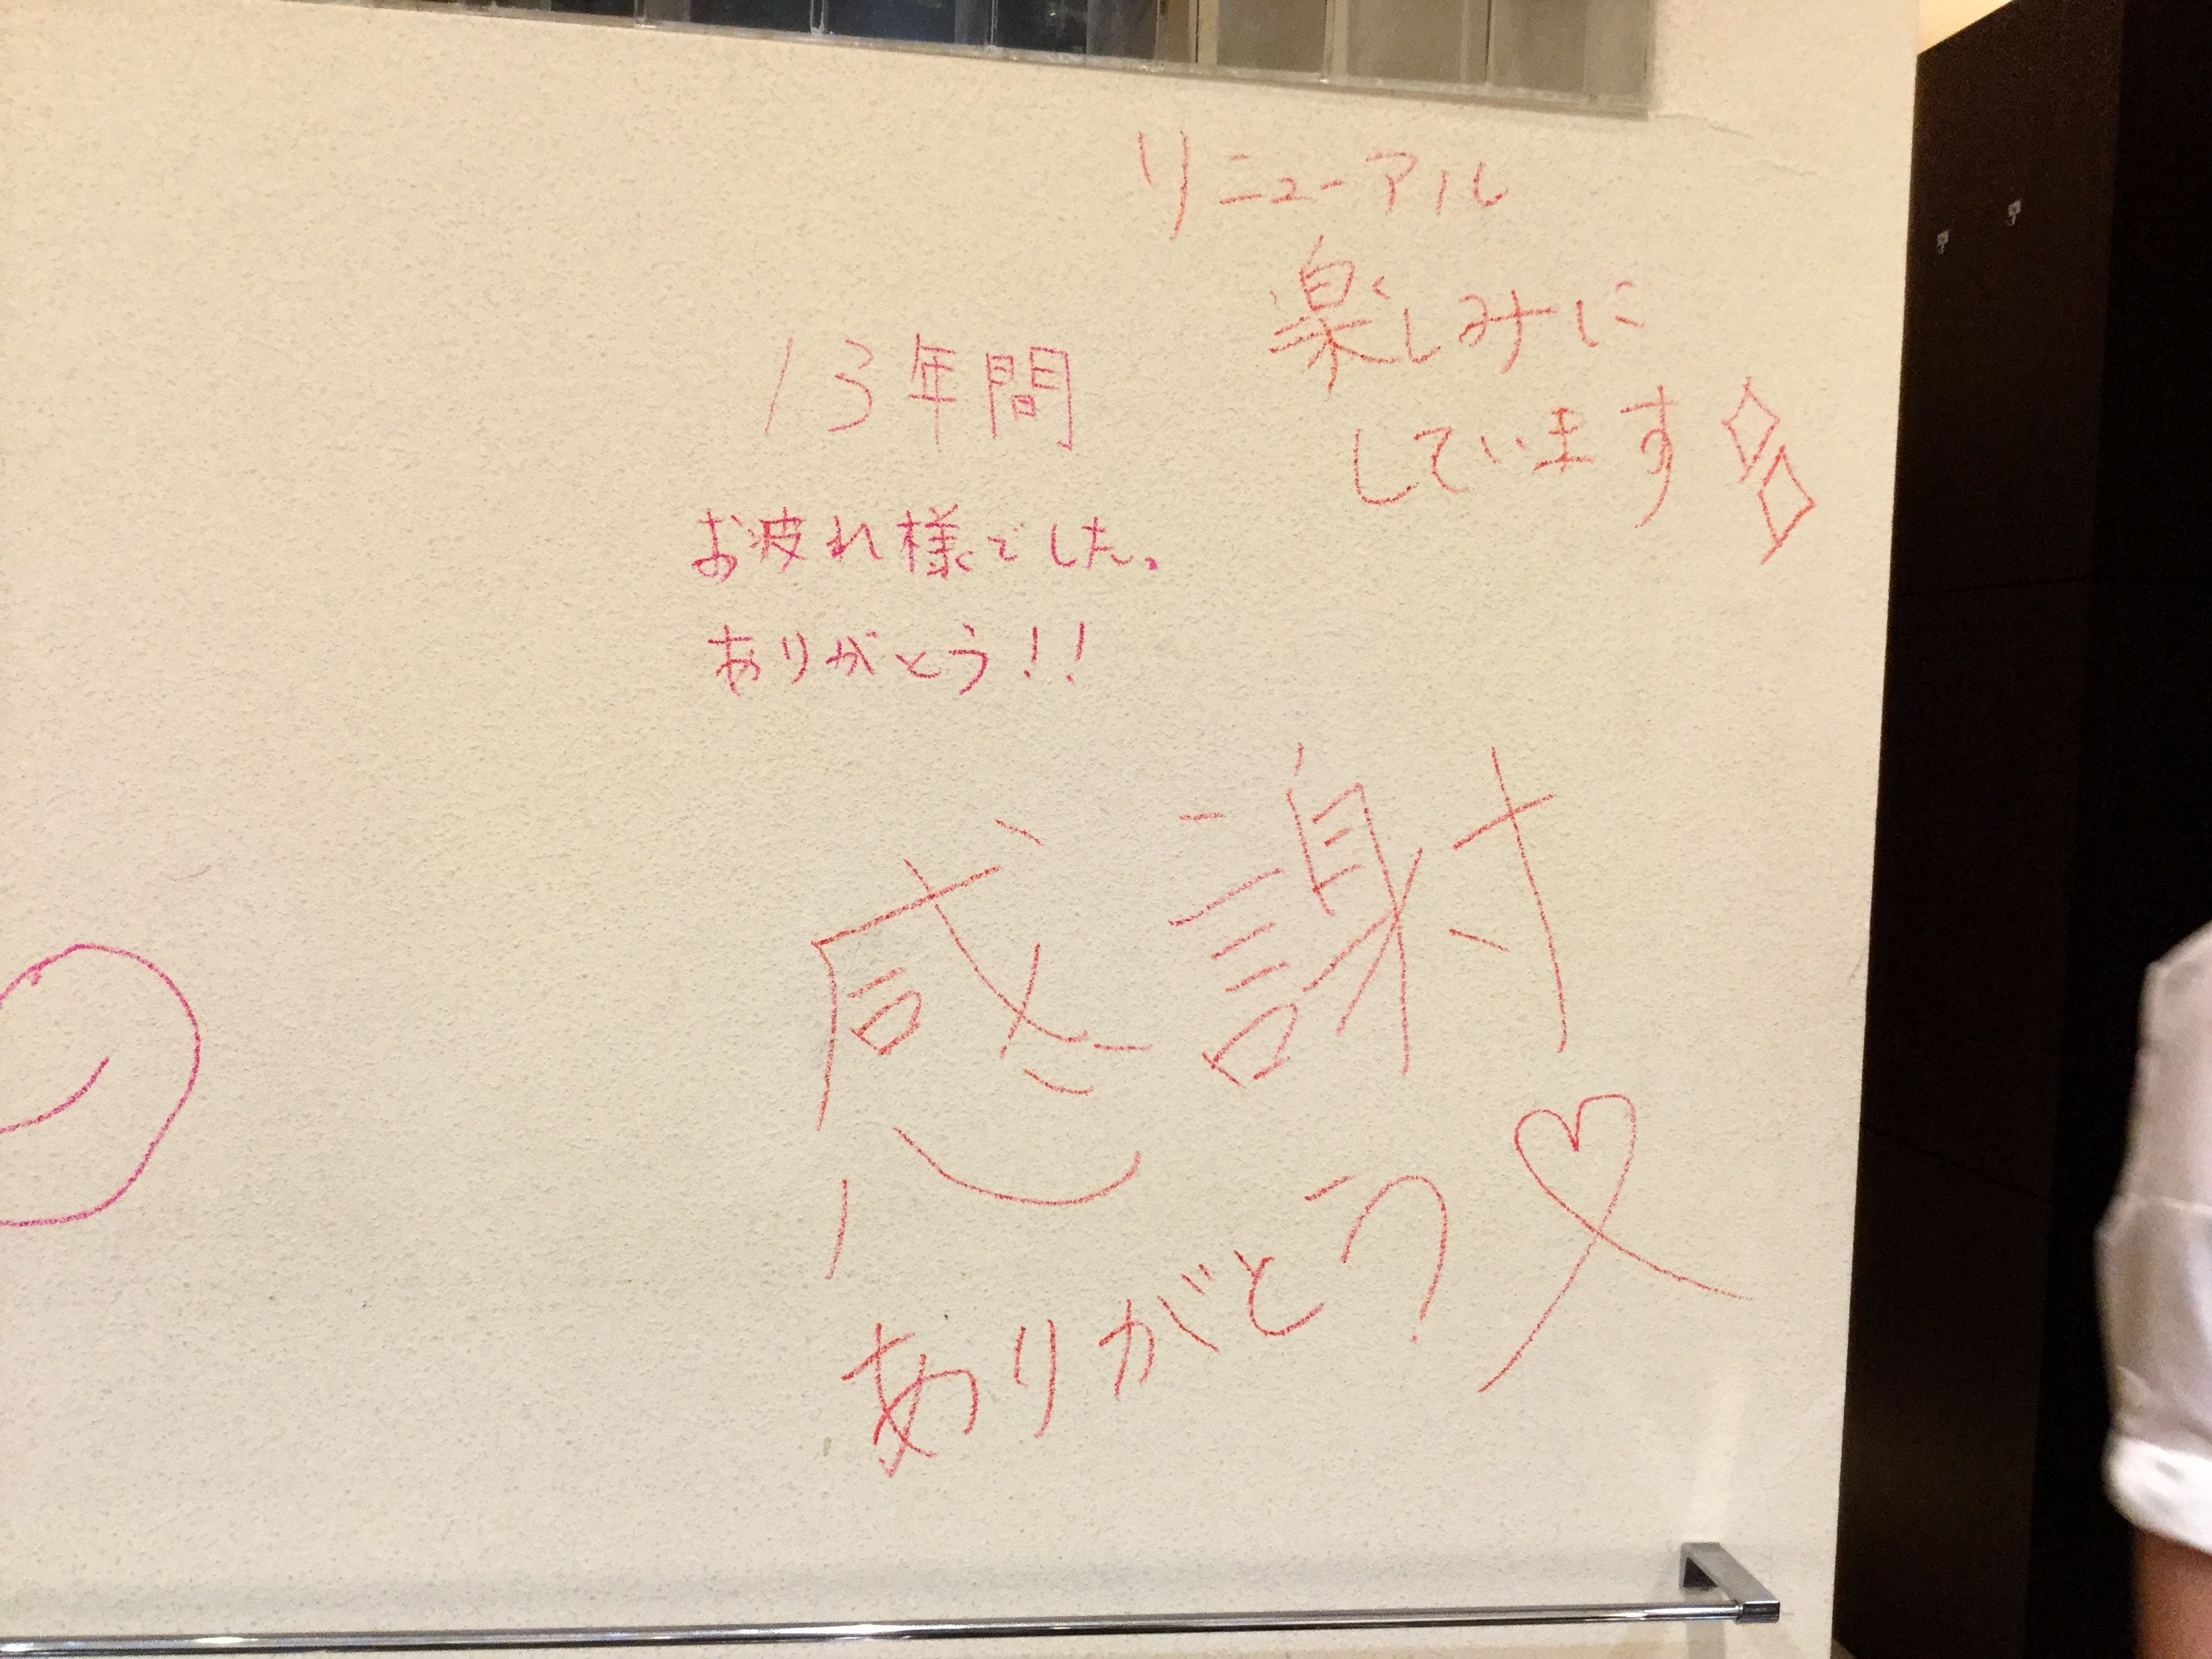 リニューアル
楽しみに
しています
13年間
お疲れ様でした。
ありがとう!!
感謝
ありがとう